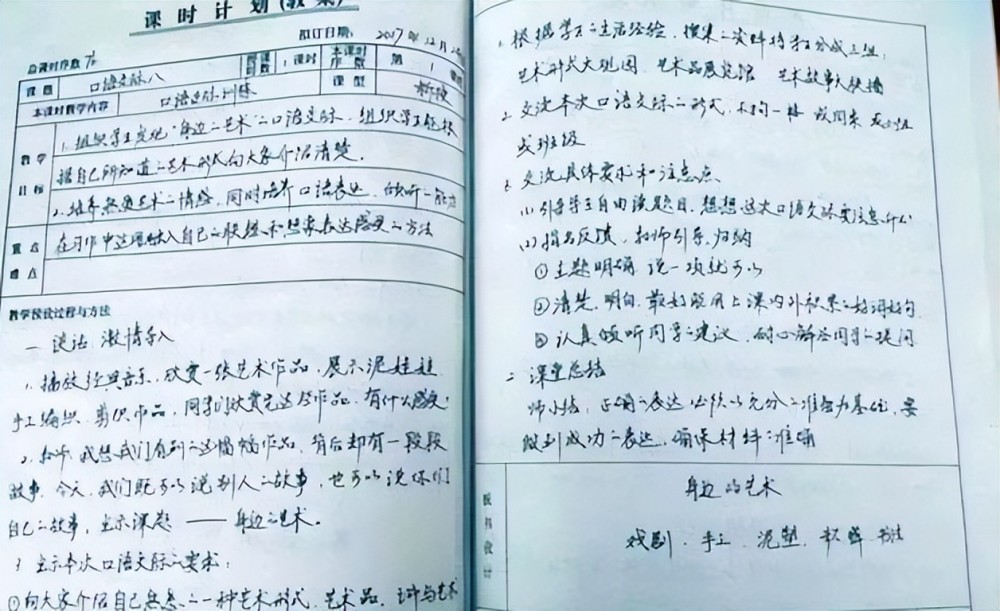 课时计划(教案)
拟订日期：2017年12月
总课时序数 70
授课时数 1课时 本课时序数 第 1 课时
课题 口语交际八 课型 新授
本课时教学内容 口语交际训练
教学目标
1、组织学生发现“身边的艺术”的口语交际，组织学生根据
据自己所知道的艺术形式向大家介绍清楚。
2、培养热爱艺术的情感，同时培养口语表达、倾听的能力
重点难点
在习作中适当融入自己的联想和想象表达感受的方法
教学预设过程与方法
一 谈话 激情导入
1、播放经典音乐，欣赏一张艺术作品，展示泥娃娃
手工编织、剪纸作品，同学们欣赏完这些作品，有什么感受？
2、我想我们看到的这幅幅作品，背后却有一段段
故事。今天，我们既可以说别人的故事，也可以说你们
自己的故事，出示课题 —— 身边的艺术。
3 出示本次口语交际的要求：
①向大家介绍自己熟悉的一种艺术形式、艺术品、
1、根据学生的生活经验，搜集的资料将学生分成三组：
艺术形式大观园 艺术品展览馆 艺术故事大联播
2、交流本次口语交际的形式，不拘一格 或同桌 或小组
或班级
3、交流具体要求和注意点
(1)引导学生自由读题目，想想这次口语交际要注意什么
(2)指名反馈，教师引导、归纳
①主题明确 说一项就可以
②清楚、明白，最好能用上课内外积累的好词好句
③认真倾听同学的建议，耐心解答同学的提问
二 课堂总结
师小结：正确的表达必须以充分的准备为基础，要
做到成功的表达，确保材料的准确
板书设计
身边的艺术
戏剧、手工、泥塑、书法